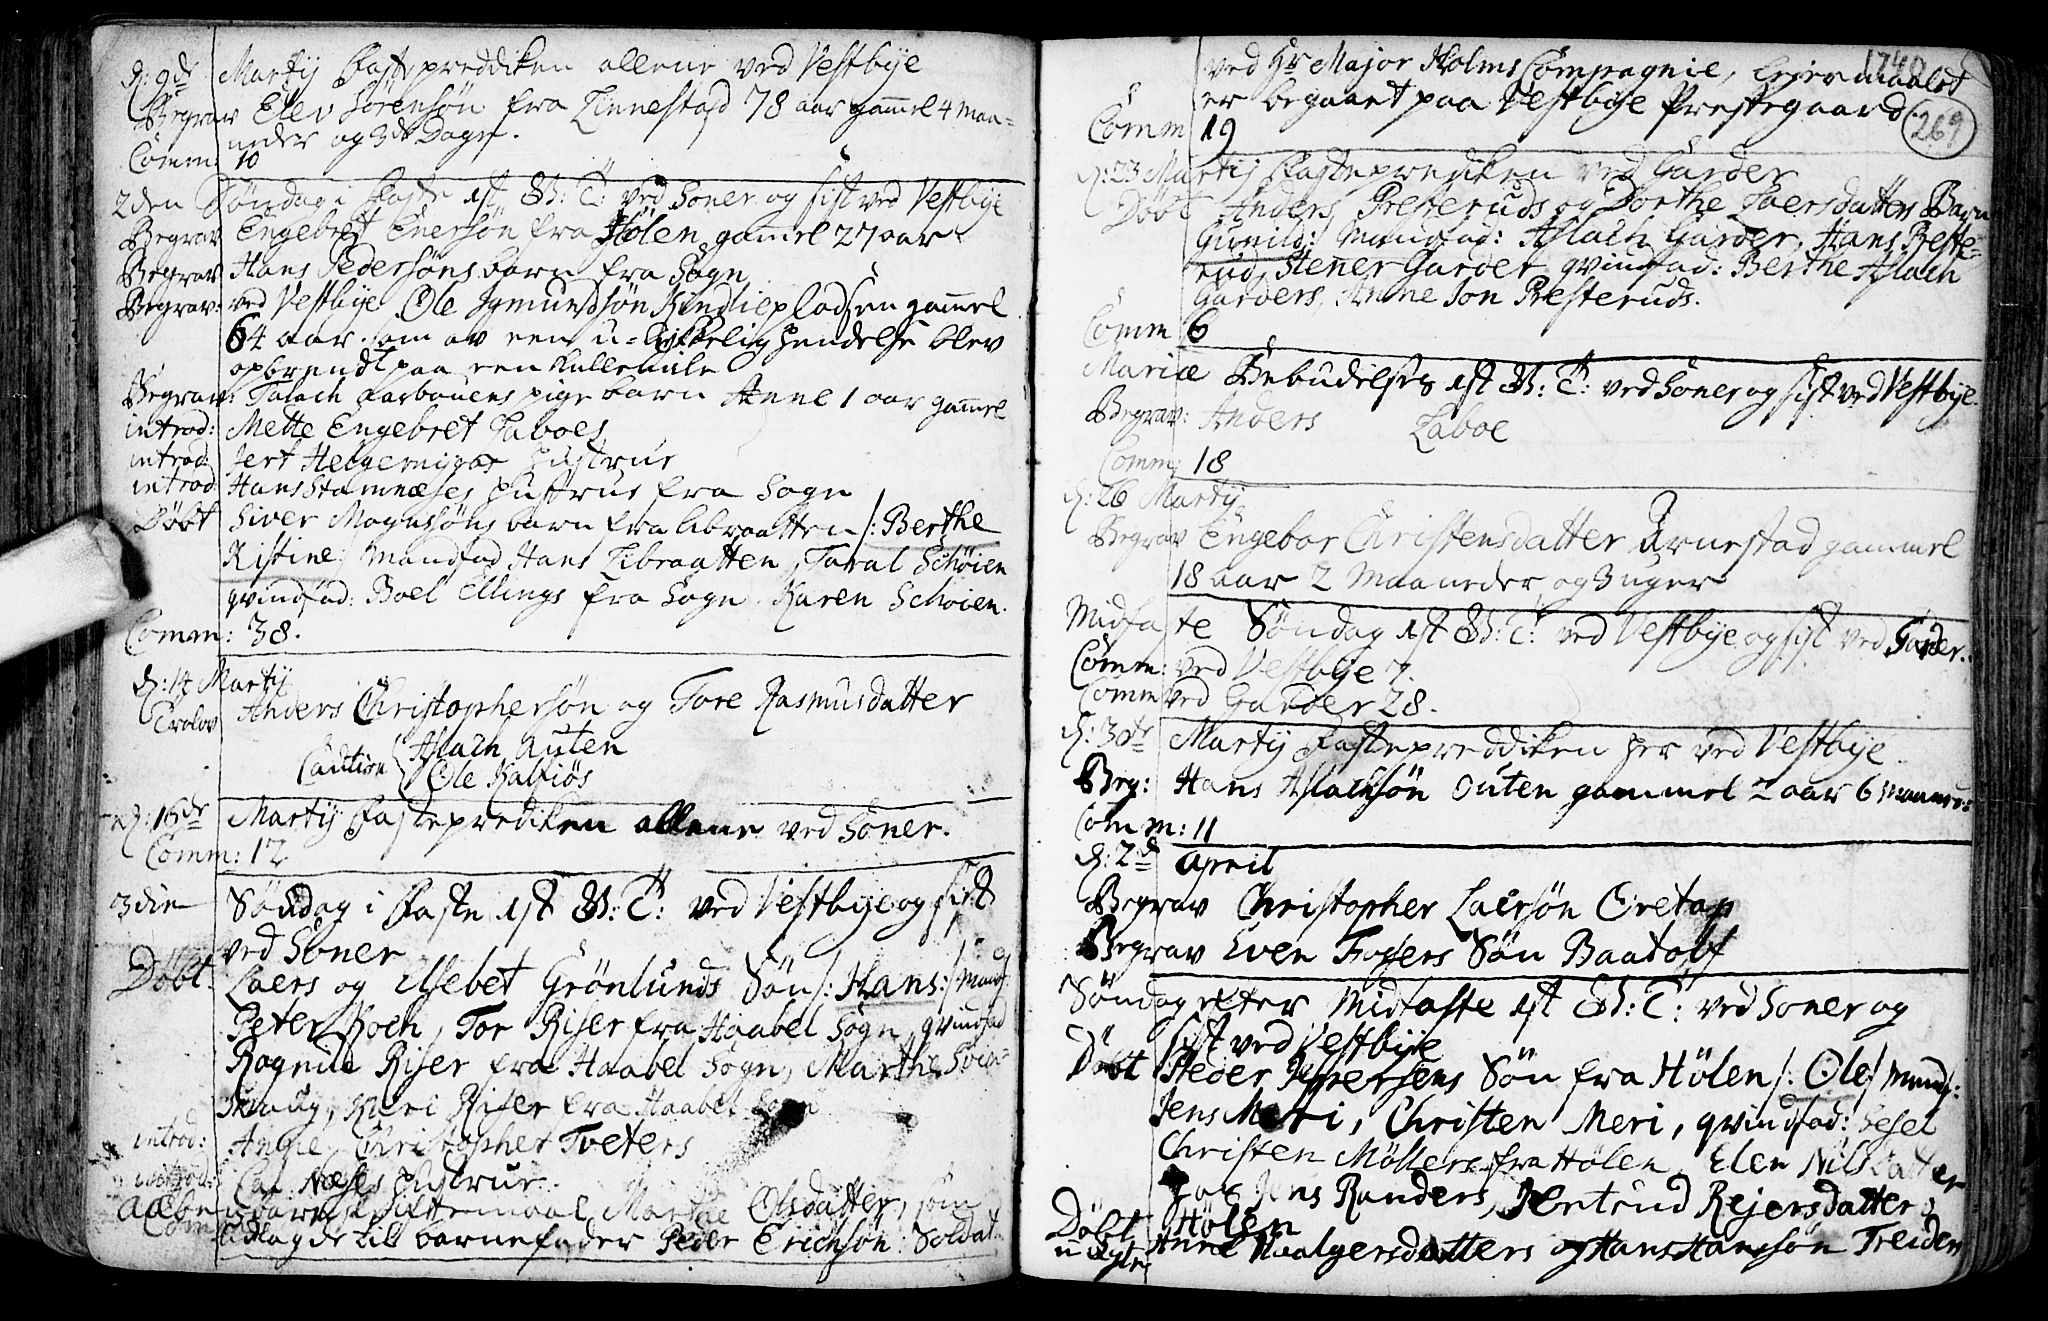 d: 9de Martij Fastepreddiken allene ved Vestbÿe
Begrav Elev Sörensön fra Linnestad 78 aar gam̅el 4 maa=
neder og 3de Dage.
Comm: 10
2den Söndag i Faste 1st G: T: ved Soner og sist ved Vestbÿe
Begrav Engebret Enersön fra Hölen gam̅el 27 aar
Begrav Hans Pedersöns barn fra Sogn
Begrav: ved Vestbÿe Ole Igmundsön Kindliepladsen gam̅el
64 aar som av een u-lykkelig Hendelse blev
opbrendt paa een Kullemile
Begrav: Talach Farbauens pige barn Anne 1 aar gam̅el
introd: Mette Engebret Laboes
introd: Jert Helgerniggas Hustrue
introd: Hans Stamnæses Hustrue fra Sogn
Döbt Siver Magnsöns barn fra Libraatten /: Berthe
Kistine:/ Mandfad Hans Libraatten, Taral Schöien
qvindfad: Boel Ellings fra Sogn, Karen Schöien.
Comm: 38.
d: 14 Martij
Trolov Anders Christophersön og Tore Rasmusdatter
Caution Aslach Auten
Ole Kalsiös
d: 16de Martij Fasteprediken allene ved Soner.
Comm: 12
3die Söndag i Faste 1st G: T: ved Vestbÿe og sist
ved Soner
Döbt Laers og Elsebet Grönlunds Sön /: Hans :/ Mandf:
Peter Koch, Tor Riser fra Haabel Sogn, qvindfad
Rognild Riser fra Haabel Sogn, Marthe
Kari Riser fra Haabel Sogn
introd: Anne Christopher Tveters
introd: Næses Hustrue.
Aabenbare Skriftemaal Marthe Olsdatter, som
udlagde till barnefader Peder Erichsön Soldat
1740
269
ved Hr Major Holms Compagnie, Leiermaalet
er begaaet paa Vestbÿe Prestegaard.
Comm 19
d: 23 Martij Fasteprediken ved Garder
Döbt Anders Presteruds og Dorthe Laersdatters Barn
Gunild: Mandfad: Aslach Garder, Hans Preste=
rud, Stener Garder, qvindfad: Berthe Aslach
Garders, Anne Jon Presteruds.
Comm 6
Mariæ Bebudelses 1st G: T: ved Soner og sist ved Vestbÿe.
Begrav: Anders Laboe
Comm: 18
d: 26 Martij
Begrav Engebor Christensdatter Arnestad gammel
18 aar 2 Maaneder og 3 uger
Midfaste Söndag 1st G: T: ved Vestbÿe og sist ved Garder.
Comm: ved Vestbÿe 7.
Comm ved Garder 28.
d: 30te Martij Fastepreddiken her ved Vestbÿe.
Beg: Hans Aslachsön Outen gammel 2 aar 6 maaned:
Comm: 11
d: 2de April
Begrav Christopher Laersön Oretap
Begrav Even Sön
Söndag efter Midfaste 1st G: T: ved Soner og
sist ved Vestbÿe
Döbt Peder Sön fra Hölen /: Ole / Mandf:
Jens Meri, Christen Meri, qvindfad: Sesel
Christen Möllers fra Hölen, Elen Nilsdatter
hos Jens Randers, Jertrud Rejersdatter i
Hölen
Döbt
uægte Anne datters og Hans Hansön Treiden